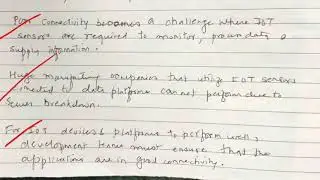 Poor Connectivity becomes a challenge where IoT
sensors are required to monitor, process data &
supply information.
Huge manufacturing companies that utilize IoT sensors
connected to data platforms cannot perform due to
server breakdown.
For IOS devices & platforms to perform well,
development teams must ensure that the
applications are in good connectivity.